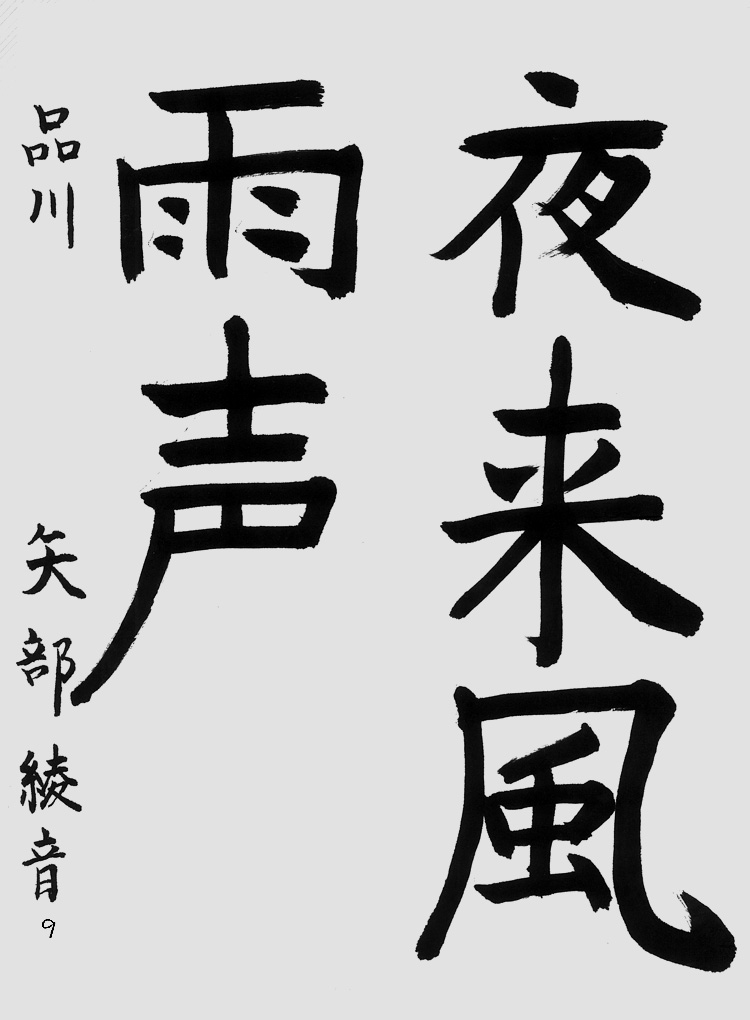 夜来風
雨声
品川 矢部綾音
9